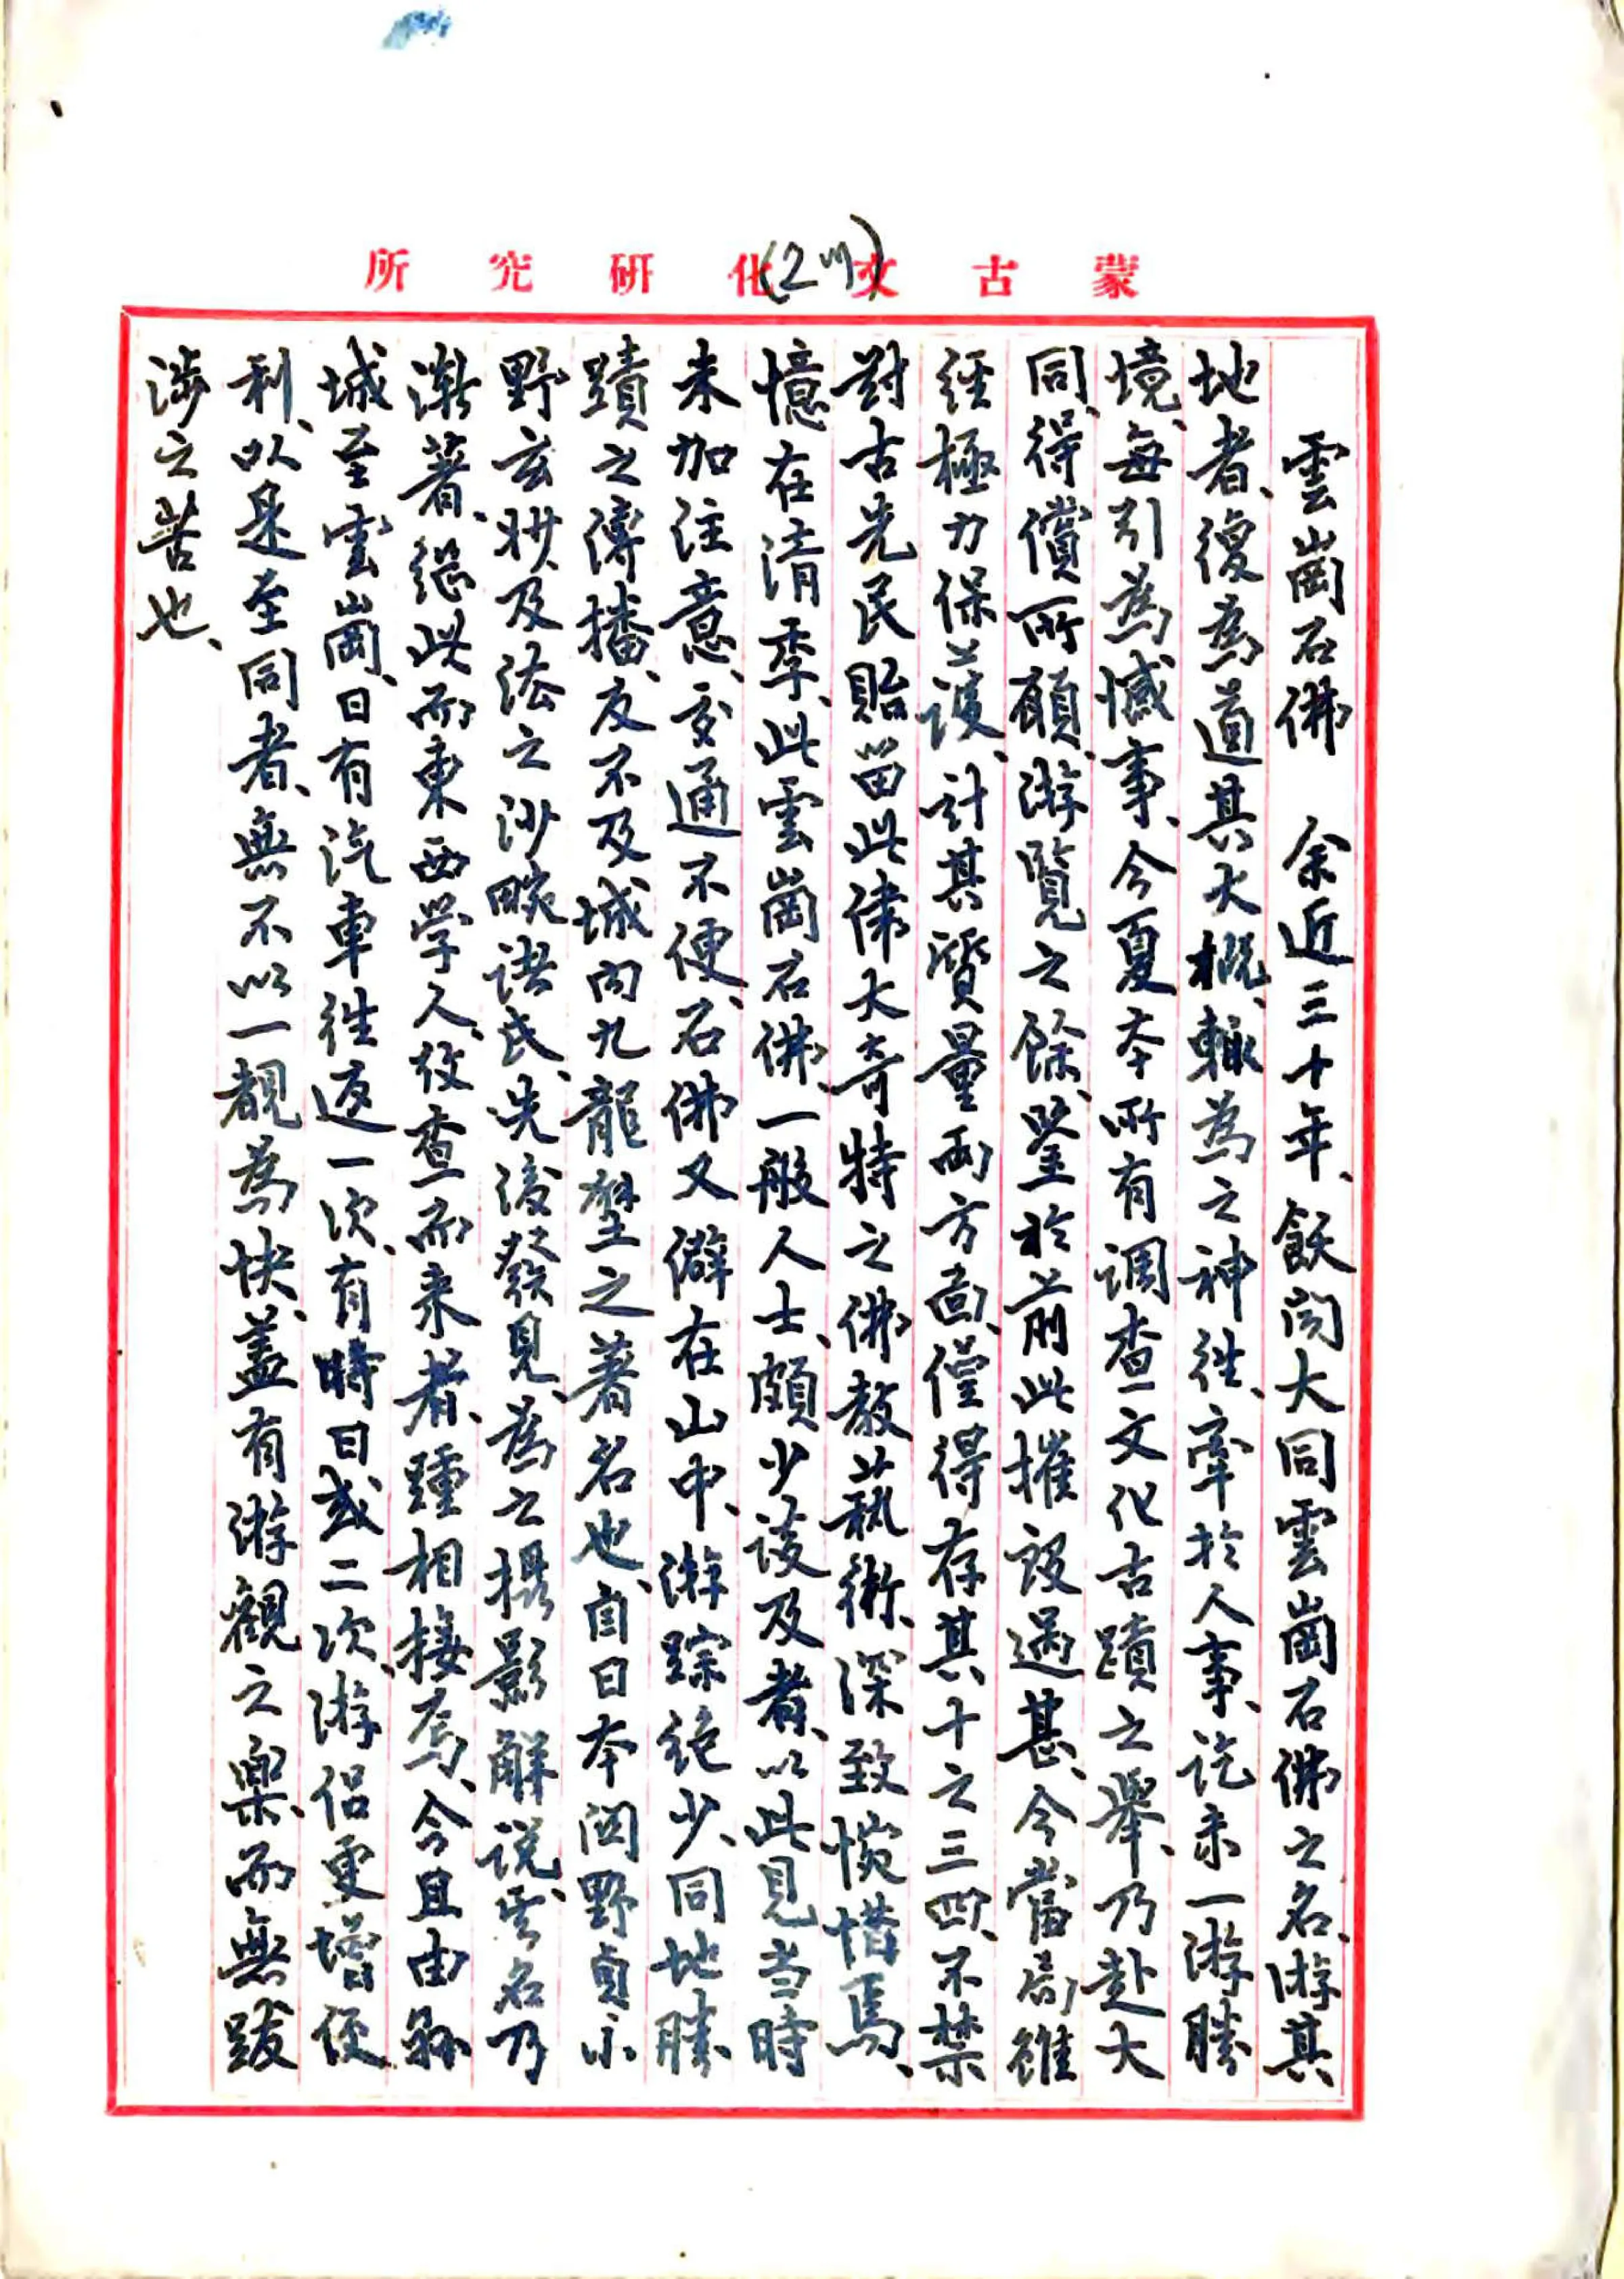 蒙古文化研究所
雲崗石佛　余近三十年、飫闻大同雲崗石佛之名、游其
地者、復為道其大概、輒為之神往、牽於人事、迄未一游勝
境、每引為憾事、今夏本所有调查文化古蹟之舉、乃赴大
同、得償所願、游覽之餘、鋻於前此摧毀過甚、今當局雖
經極力保護、計其質量两方面、僅得存其十之三四、不禁
對古先民貽留此偉大奇特之佛教藝術、深致惋惜焉、
憶在清季、此雲崗石佛、一般人士、頗少談及者、以此見当時
未加注意、交通不便、石佛又僻在山中、游踪絶少、同地勝
蹟之傳播、反不及城内九龍壁之著名也、自日本関野貞小
野玄妙及法之沙畹諸氏、先後發見、為之撮影解説、雲名乃
漸著、從此而東西学人、攷查而来者、踵相接焉、今且由縣
城至雲崗、日有汽車往返一次、有時日或二次、游侣更增便
利、以是至同者、無不以一覩為快、蓋有游觀之樂、而無跋
涉之苦也、